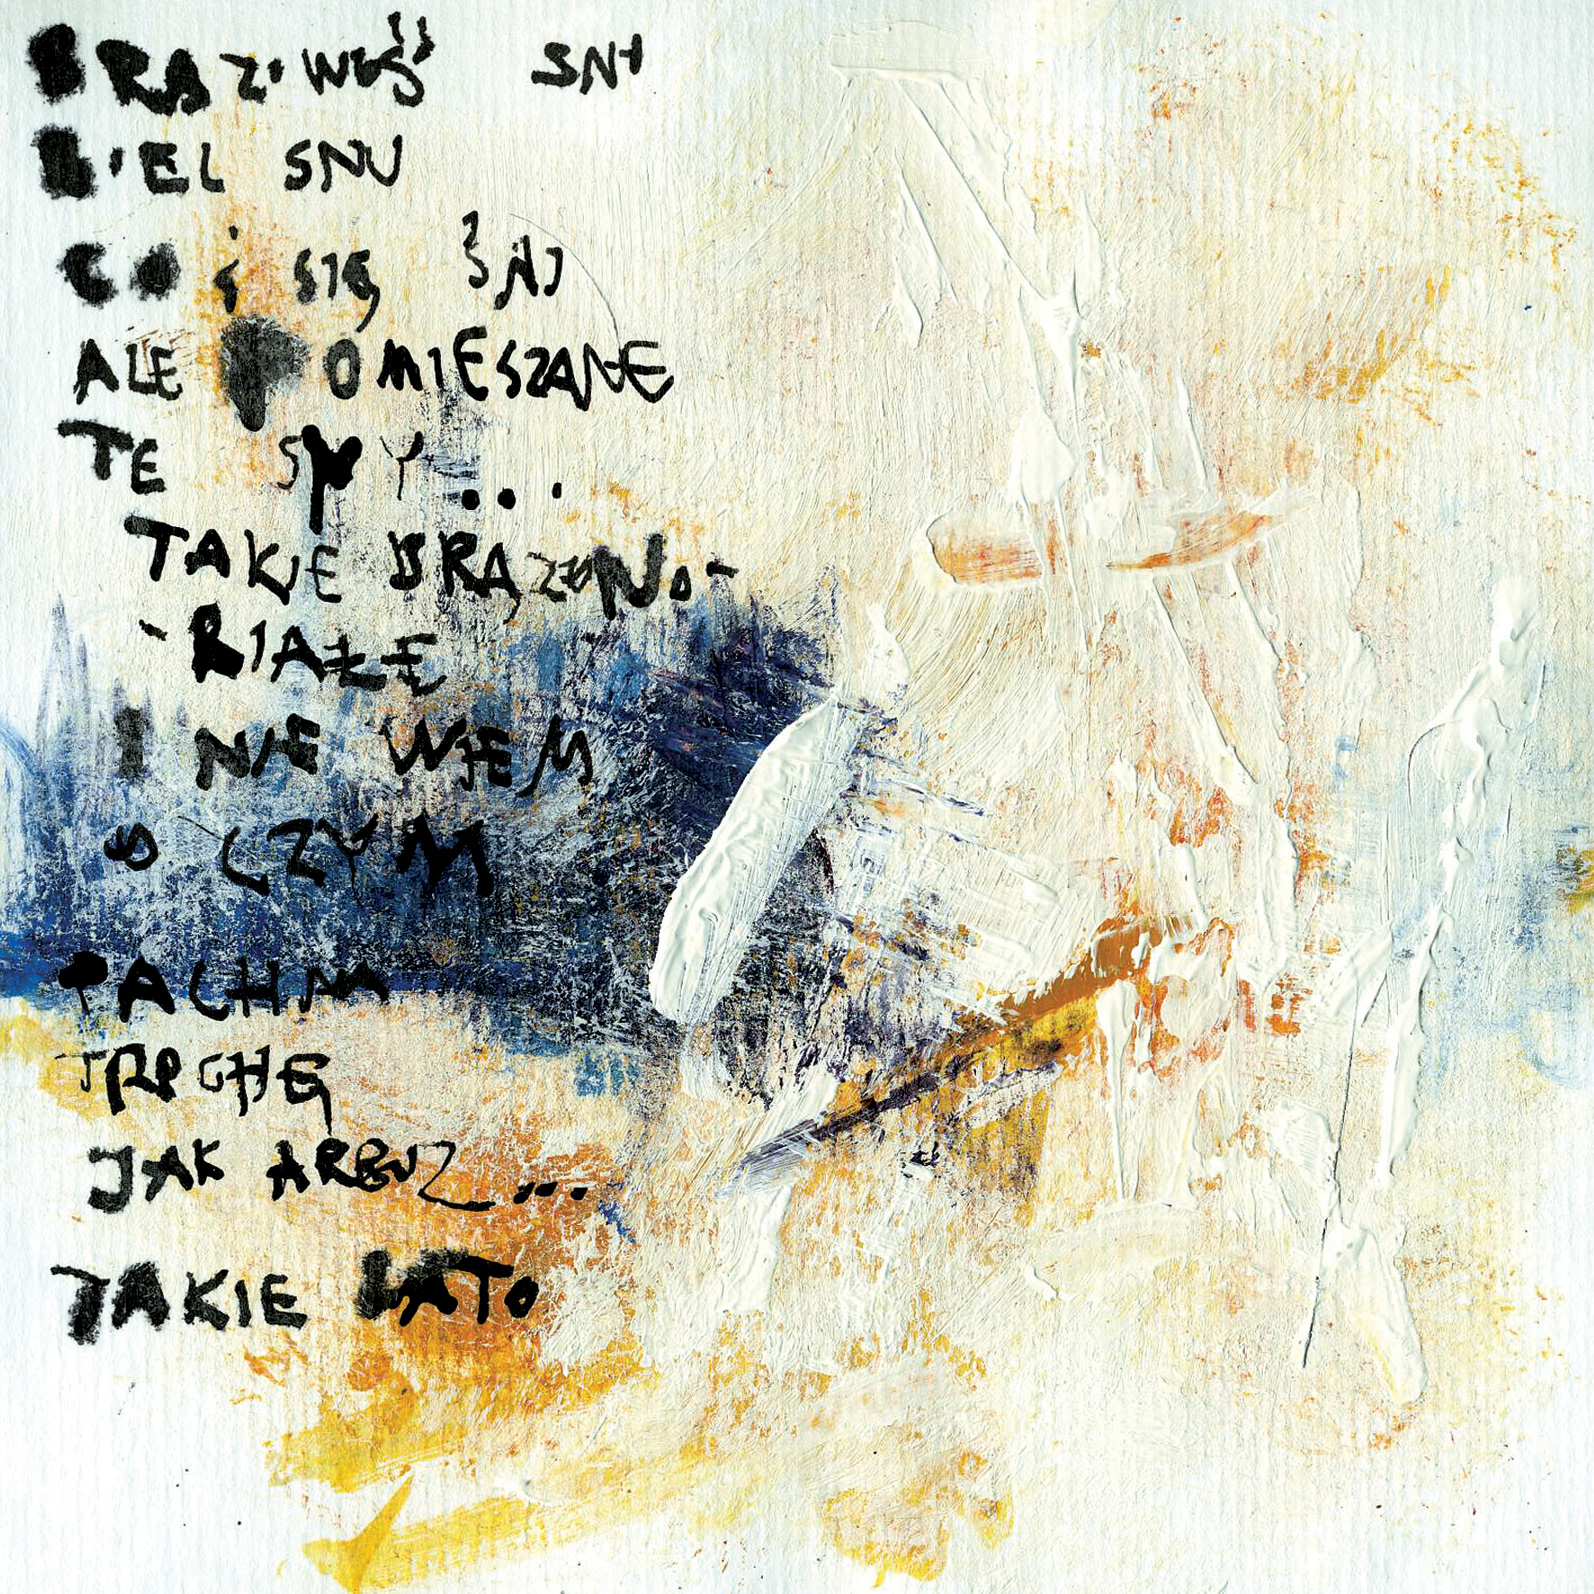 BRĄZOWOŚĆ SNU
BIEL SNU
CO I SIĘ ŚNI
ALE POMIESZANE
TE SNY...
TAKIE BRĄZOWO-
-BIAŁE
I NIE WIEM
O CZYM
PACHNĄ
TROCHĘ
JAK ARBUZ...
TAKIE LATO